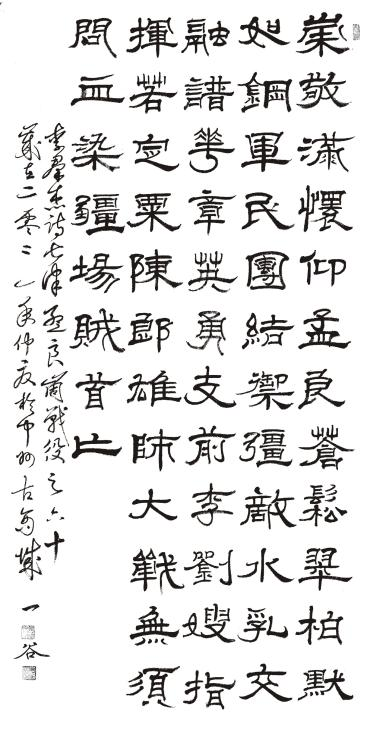 崇敬滿懷仰孟良蒼鬆翠柏默
如鋼軍民團結禦彊敵水乳交
融譜華章英勇支前李劉嫂指
揮若定粟陳郎雄師大戰無須
問血染疆場賊首亡
詩七律孟良崮戰役之六十
歲在二零二一年仲夏於中州古商城 一谷